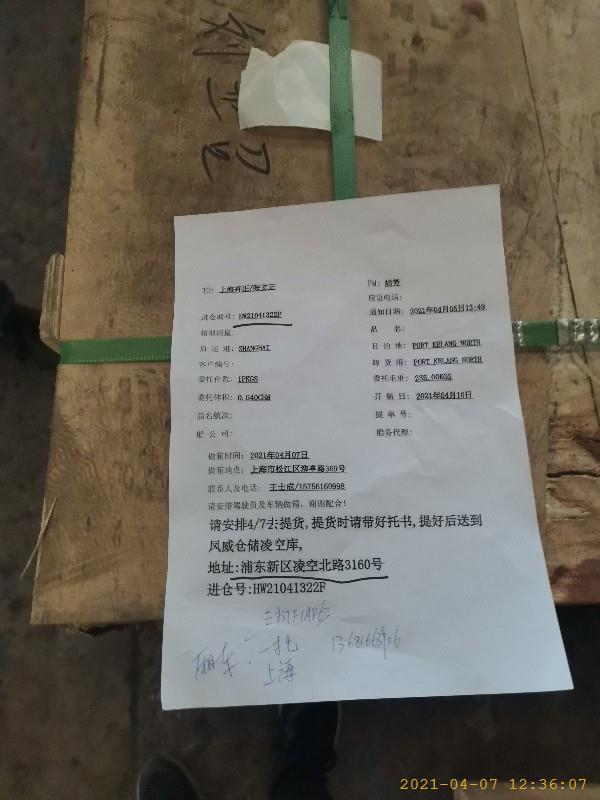 FM: 胡芳
应急电话:
进仓编号: HW21041322F
通知日期: 2021年04月06日13:49
箱型箱量:
品 名:
启 运 港: SHANGHAI
目 的 地: PORT KELANG NORTH
客户编号:
卸 货 港: PORT KELANG NORTH
委托件数: 1PKGS
委托毛重: 235.00KGS
委托体积: 0.640CBM
开 航 日: 2021年04月10日
船名航次:
提 单 号:
船 公 司:
船务代理:
做箱时间: 2021年04月07日
做箱地点: 上海市松江区漕亭路369号
联系人及电话: 王士成/15756160998
请安排驾驶员及车辆做箱。谢谢配合!
请安排4/7去提货,提货时请带好托书,提好后送到
凤威仓储凌空库,
地址:浦东新区凌空北路3160号
进仓号:HW21041322F
一托
上海
2021-04-07 12:36:07